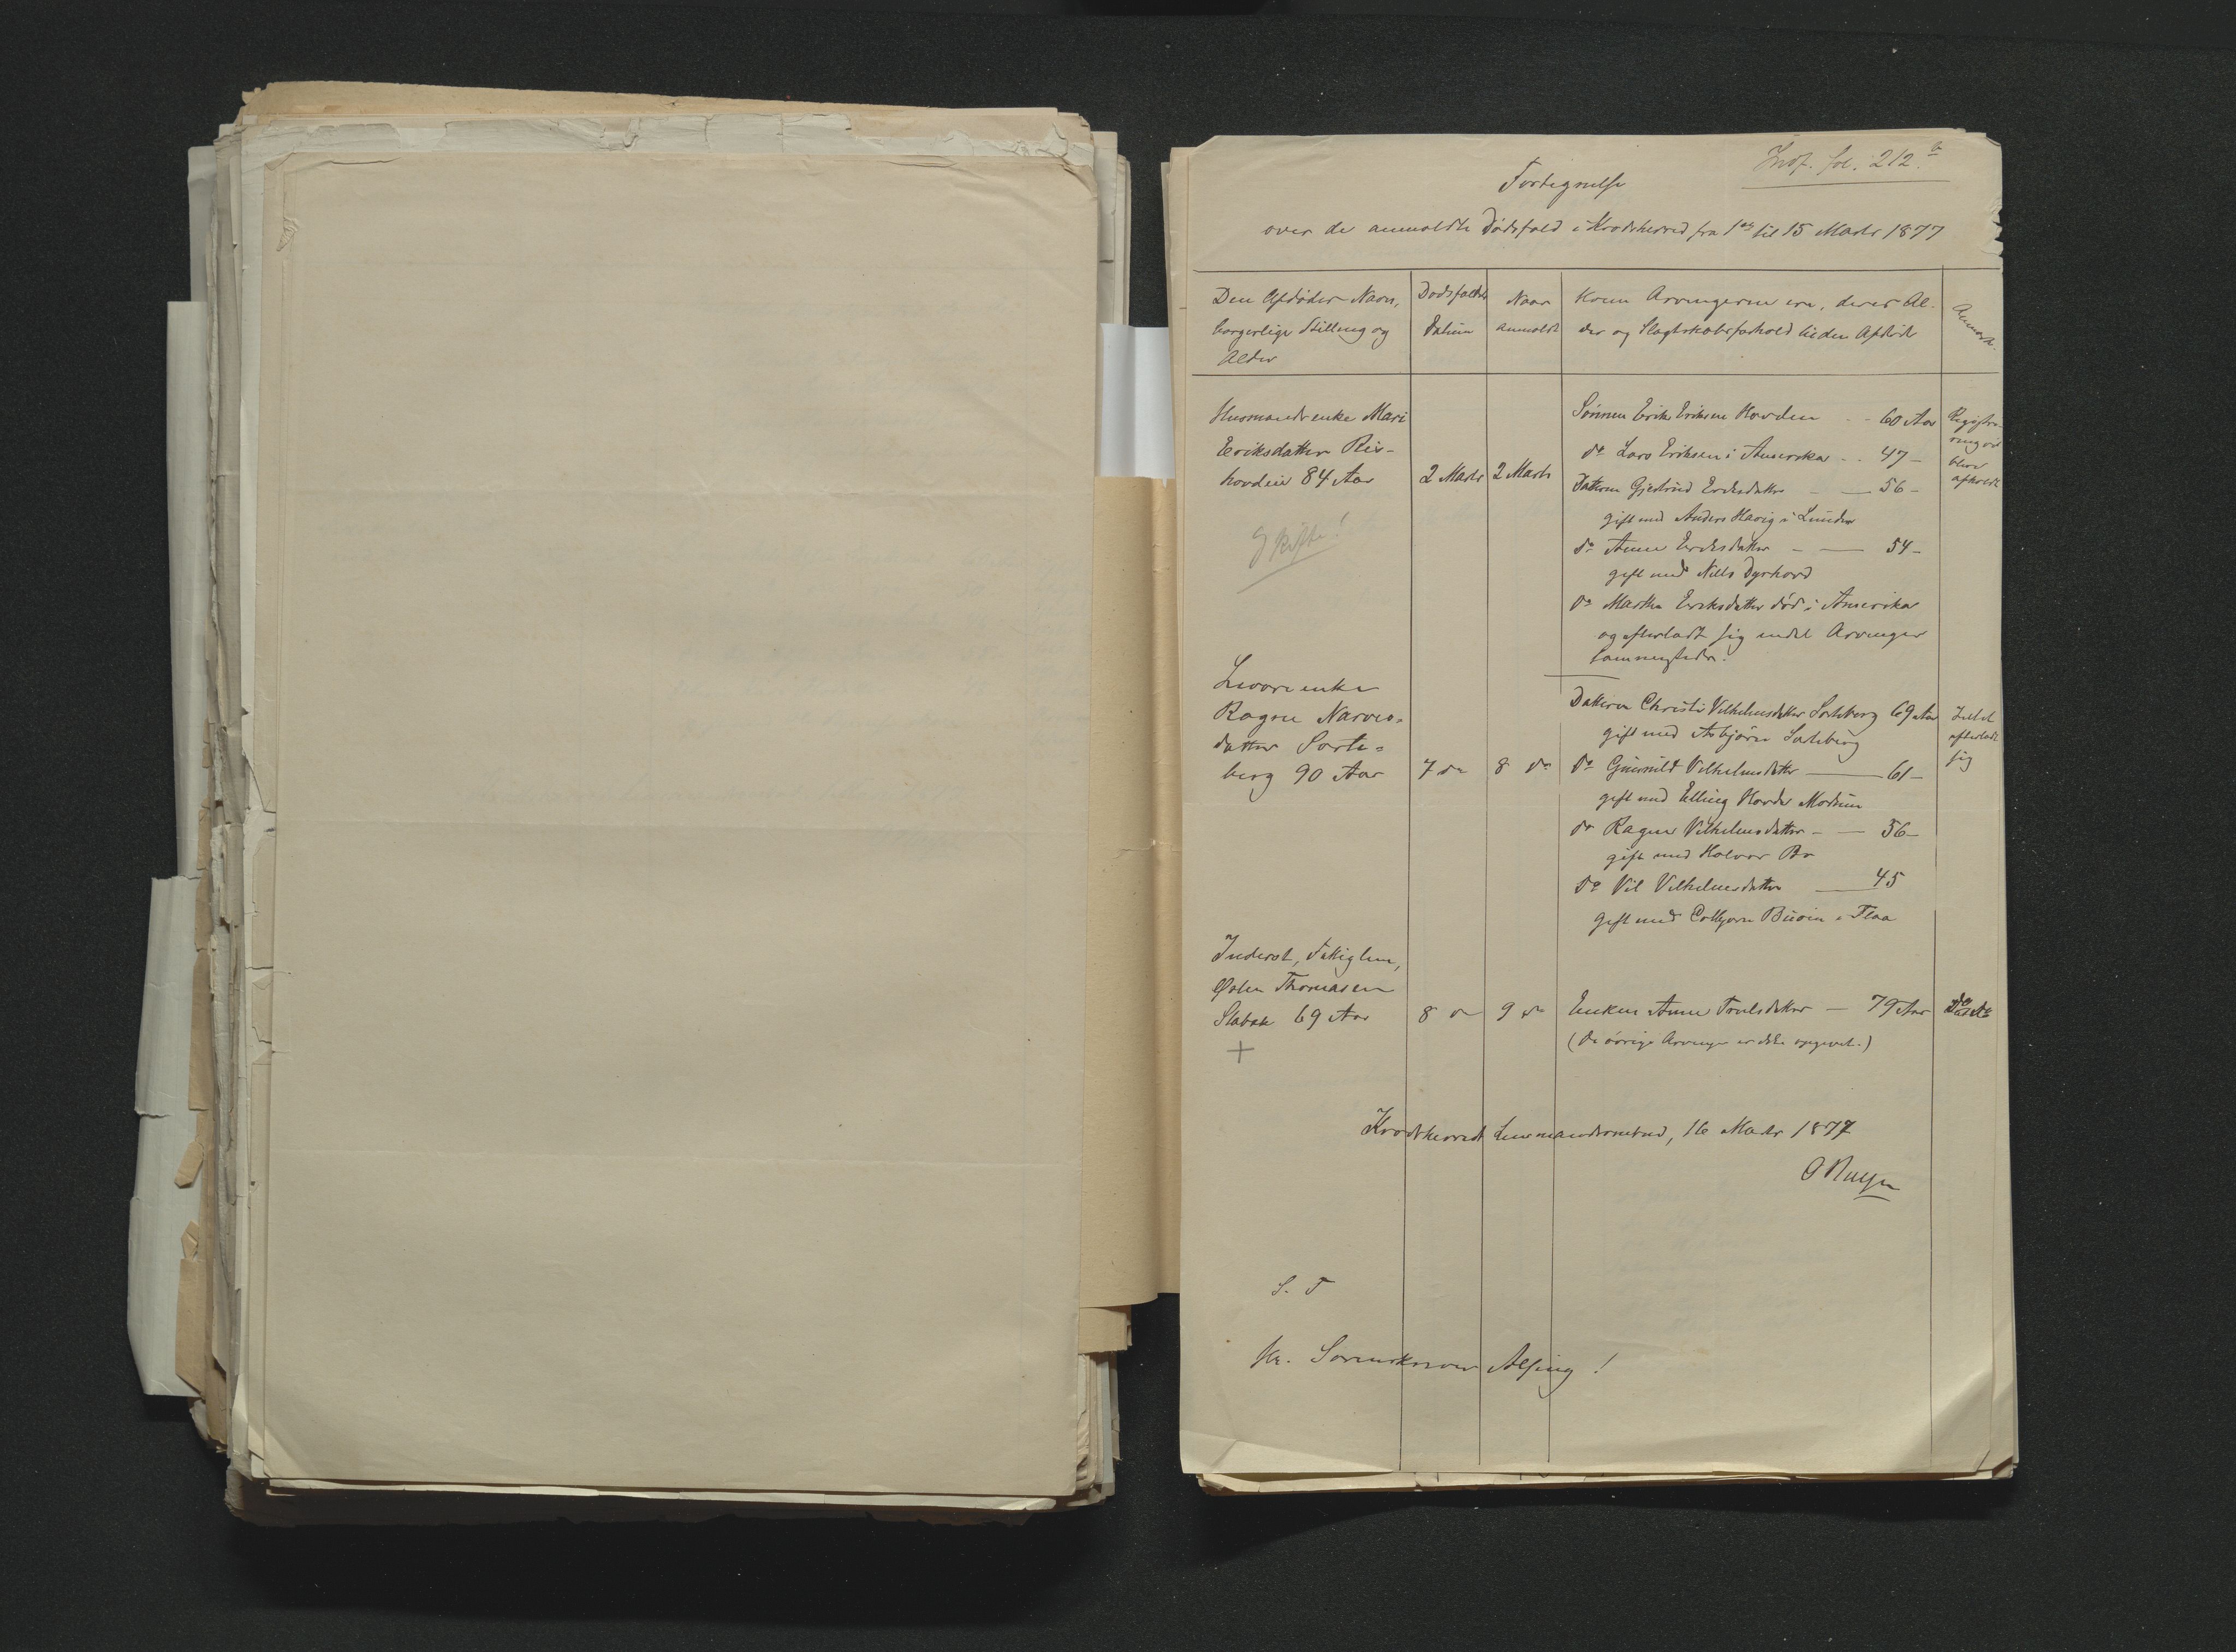 Indf. fol. 212.b
Fortegnelse
over de anmeldte Dødsfald i Krødsherred fra 1ste til 15 Marts 1877
Den Afdødes Navn,
borgerlige Stilling og
Alder
Dødsfaldets
Datum
Naar
anmeldt
Hvem Arvingerne ere, deres Al-
der og Slægtskabsforhold til den Afdøde
Anmærk.
Husmandsenke Mari
Eriksdatter Ris-
hovdeie 84 Aar
2 Marts
2 Marts
Sønnen Erik Eriksen Hovden - - 60 Aar
do Lars Eriksen i Amerika - - 47 -
Datteren Gjertrud Eriksdatter - — 56 -
gift med Anders Havig i Lunder
do Anne Eriksdatter - — 54 -
gift med Nills Dyrhovd
do Marthe Eriksdatter død i Amerika
og efterladt sig endel Arvinger
sammesteds.
Registre-
ring vil
blive
afholdt
Skifte!
Levoreenke
Ragne Narves-
datter Sorte-
berg 90 Aar
7 do
8 do
Datteren Christi Vilhelmsdatter Sorteberg 69 Aar
gift med Asbjørn Sorteberg
do Gunnild Vilhelmsdatter — 61 -
gift med Elling Hovde Modum
do Ragne Vilhelmsdatter - — 56 -
gift med Halvor Bø
do Vil Vilhelmsdatter — 45
gift med Colbjørn Buvin i Flaa
Intet
efterladt
sig
Inderst, Fattiglem,
John Thomasen
Slabak 69 Aar
+
8 do
9 do
Enken Anne Trulsdatter — 79 Aar
(De øvrige Arvinger er ikke opgivet.)
do
Krødsherred Lensmandsombud, 16 Marts 1877
S. T
Hr. Sorenskriver Alsing!